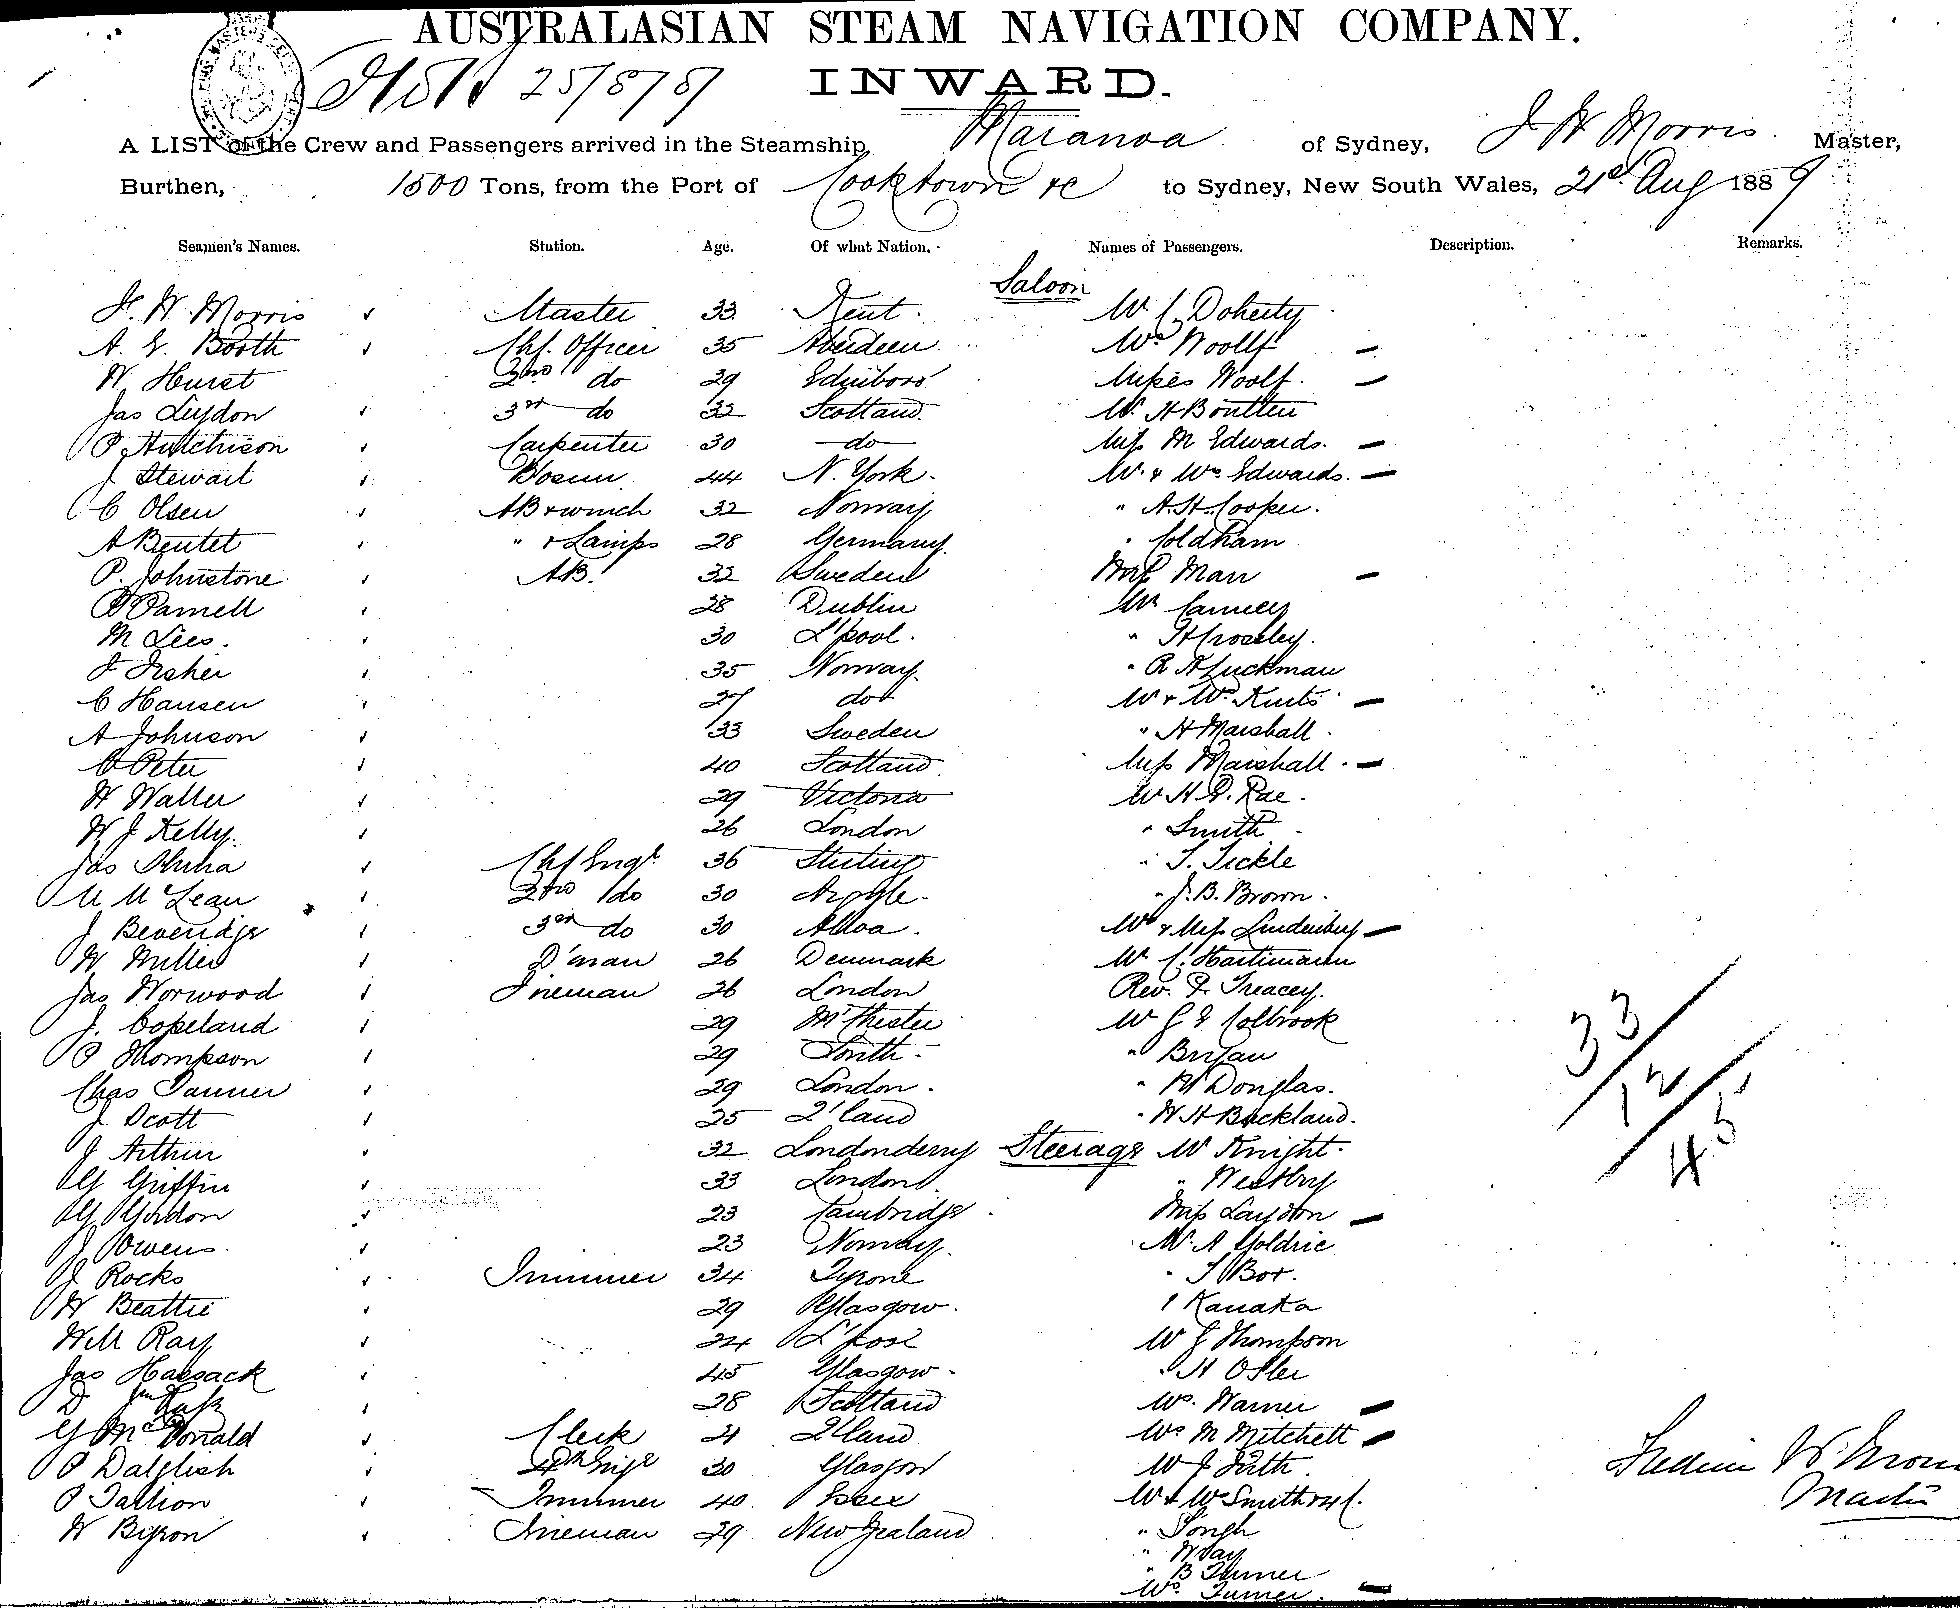 AUSTRALASIAN STEAM NAVIGATION COMPANY.
25/8/87 INWARD.
A LIST of the Crew and Passengers arrived in the Steamship, Maranoa of Sydney, J W Morris Master,
Burthen, 1500 Tons, from the Port of Cooktown &c to Sydney, New South Wales, 21st Aug 1889
Seamen's Names. Station. Age. Of what Nation. Names of Passengers. Description. Remarks.
Saloon
J. W. Morris Master 33 Kent Mr C. Doherty
A. E. Booth Chf. Officer 35 Aberdeen Mrs Woolf
W. Hurst 2nd do 29 Edinboro' Misses Woolf
Jas Leydon 3rd do 32 Scotland Mr H Boulten
P. Hutchison Carpenter 30 do Miss M Edwards.
J Stewart Bosun 44 N. York. Mr & Mrs Edwards.
C Olsen AB & winch 32 Norway " A H Cooper.
A Beutel " & Lamps 28 Germany " Coldham
P. Johnstone AB. 32 Sweden Miss Man
Parnell 28 Dublin Mr Canney
M Lees. 30 L'pool. " H Crossley.
J Fisher 35 Norway " R A Luckman
C Hansen 27 do Mr & Mrs Kurts
A Johnson 33 Sweden " H Marshall.
Peter 40 Scotland Miss Marshall.
H Walter 29 Victoria Mr H. P. Rae.
W J Kelly. 26 London " Smith
Jas Chf Engr 36 Stirling " T. Tickle
McLean 2nd do 30 Argyle. " J. B. Brown.
J Beveridge 3rd do 30 Alloa. Mr & Miss Lindenberg
W Miller D'man 26 Denmark Mr C. Hartimann
Jas Norwood Fireman 26 London Rev. P. Treacey.
J. Copeland 29 M'Chester Mr G E Colbrook
P Thompson 29 Leith. " Bryan
Chas Tanner 29 London. " Douglas.
J Scott 25 Q'land " W H Buckland.
J Arthur 32 Londonderry Steerage Mr Knight.
G Griffin 33 London " Westby
G Gordon 23 Cambridge Miss Laydon
J Owens. 23 Norway. Mr A Goldrie
J Rocks Trimmer 34 Tyrone " T Box.
W Beattie 29 Glasgow. 1 Kanaka
Will Ray 24 L'pool Mr G Thompson
Jas Hassack 45 Glasgow. " H Osler
D 28 Scotland Mrs. Warner
G McDonald Clerk 21 Q'land Mrs M Mitchell
P Dalglish 4th Engr 30 Glasgow Mr J Firth.
P Tallion Trimmer 40 Essex Mr & Mrs Smith & C.
W Byron Fireman 29 New Zealand " Tongh
" Wray
" B Turner
Mrs. Turner.
33
12
45
Master